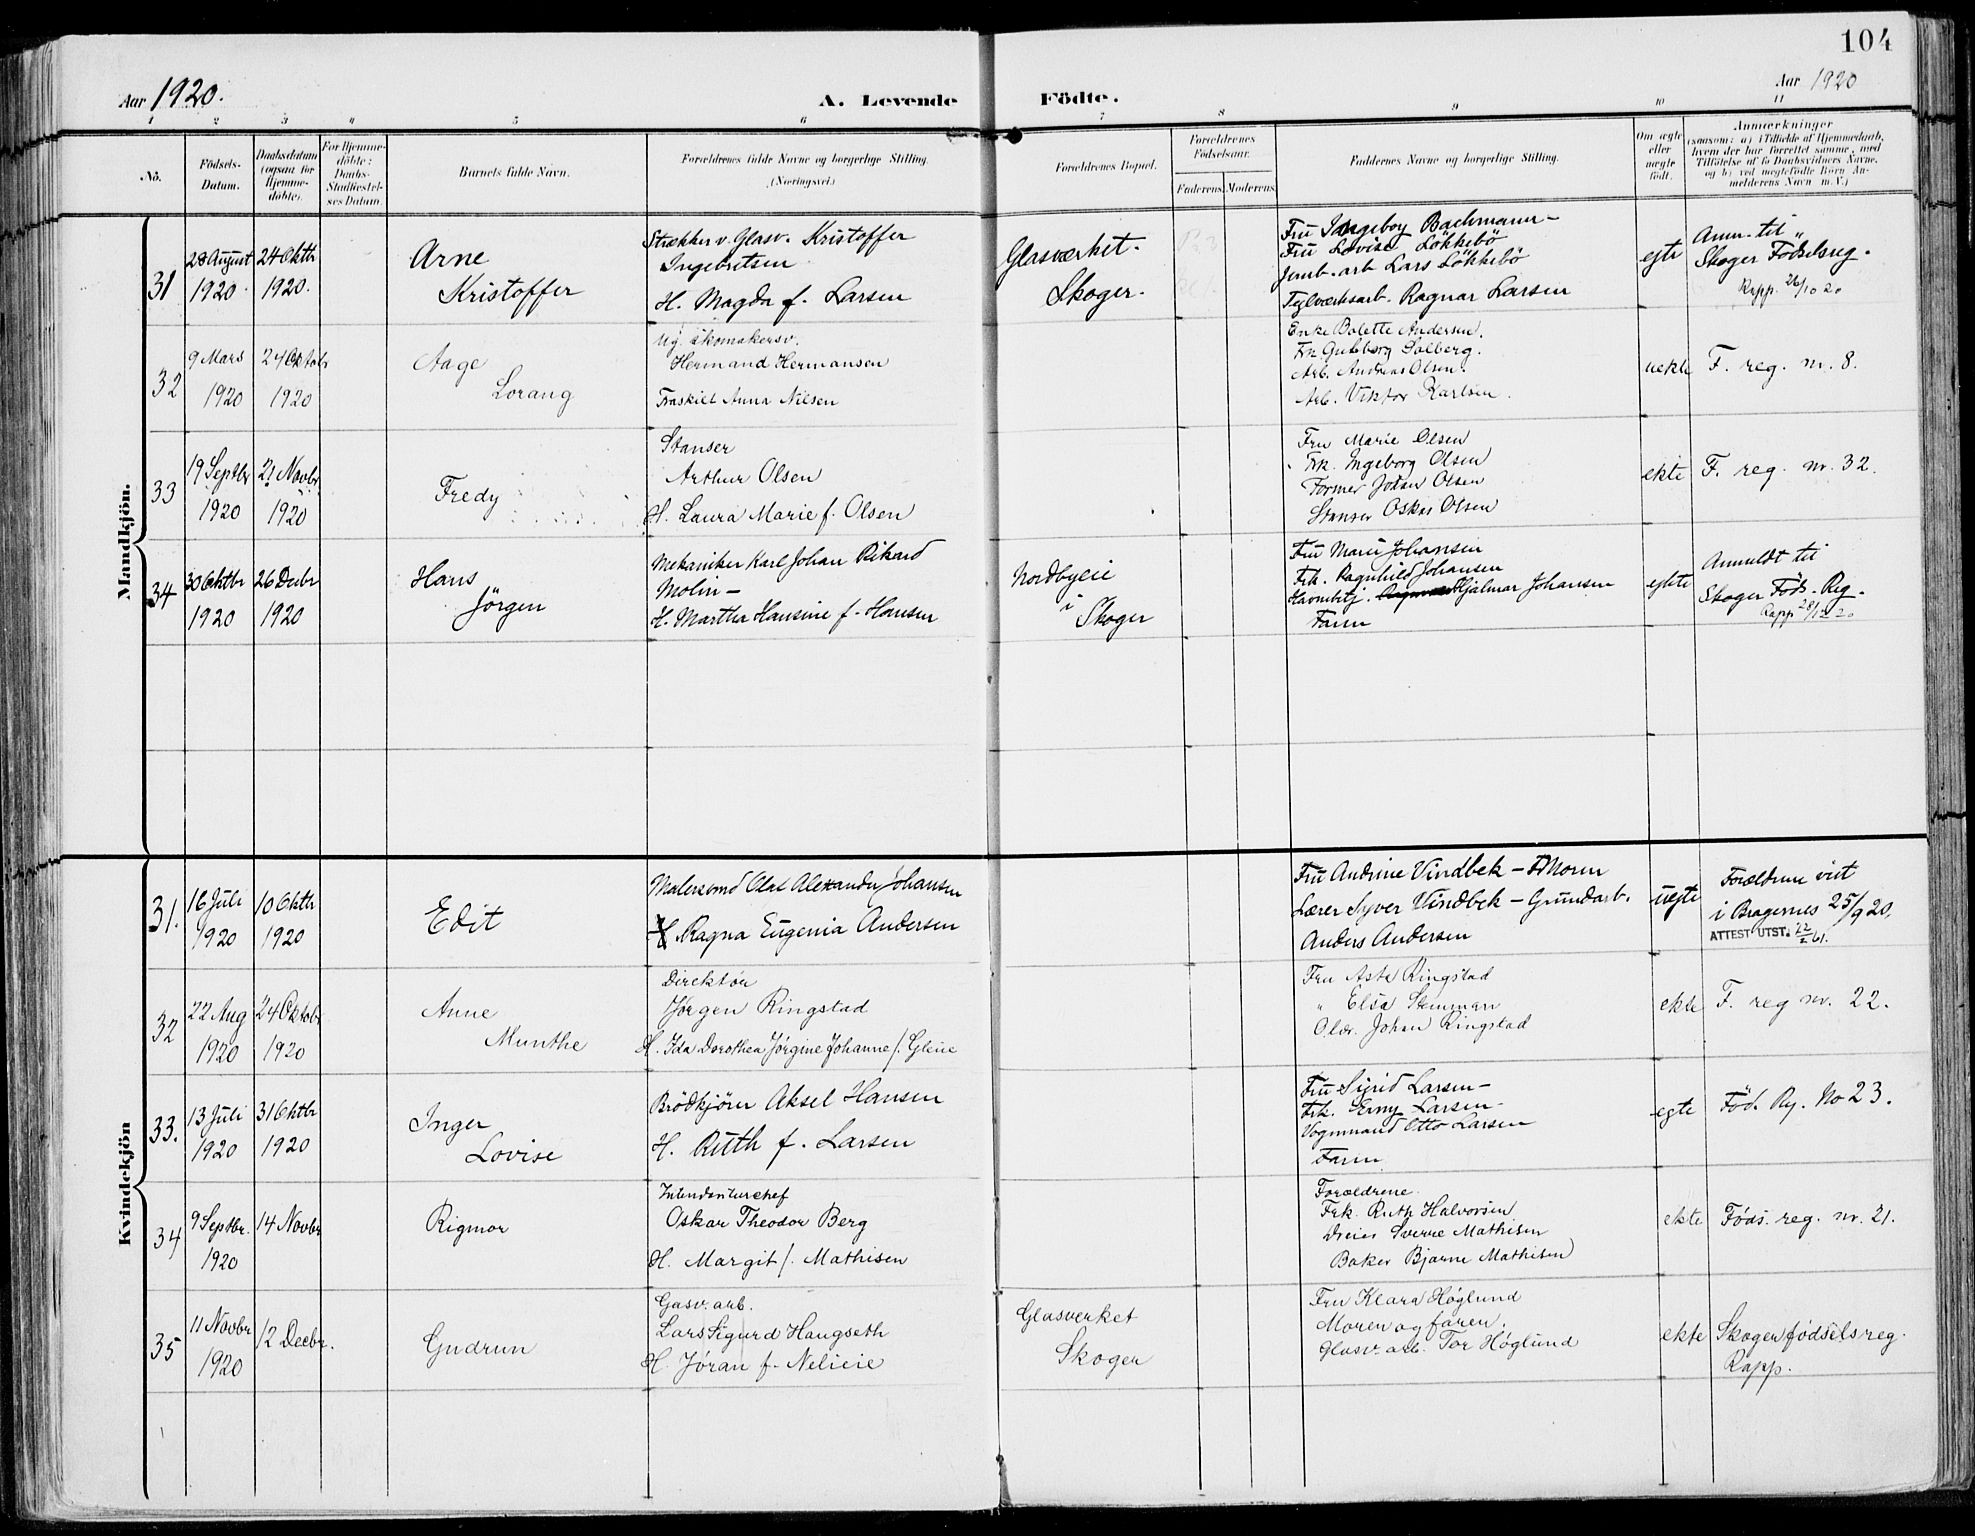 104
Aar 1920.
A. Levende Födte.
Aar 1920
1 2 3 4 5 6 7 8 9 10 11
No.
Födsels-Datum.
Daabsdatum (ogsaa for Hjemmedöbte).
For Hjemmedöbte: Daabs-Stadfæstelses Datum.
Barnets fulde Navn.
Forældrenes fulde Navne og borgerlige Stilling. (Næringsvei.)
Forældrenes Bopæl.
Forældrenes Födselsaar.
Faderens. Moderens.
Faddernes Navne og borgerlige Stilling.
Om ægte eller uægte födt.
Anmærkninger
(saasom: a) i Tilfælde af Hjemmedaab, hvem der har forrettet samme, med Tilföielse af to Daabsvidners Navne, og b) ved uægtefödte Börn Anmelderens Navn m. V.)
Mandkjön.
31
28 August 1920
24 Oktbr 1920.
Arne
Kristoffer
Strækker v. Glasv. Kristoffer
Ingebretsen
H. Magda f. Larsen
Glasværket.
Skoger.
Fru Ingeborg Bachmann-
Fru Lovise Lökkebö
Jernb. arb Lars Lökkebö
Ragnar Larsen
egte
Anm. til
Skoger Fødselsreg.
Rapp. 26/10 20
32
9 Mars 1920
24 Oktobr 1920
Aage
Lorang
Ug. skomakersv.
Hermand Hermansen
Fraskilt Anna Nilsen
Enke Bolette Andersen.
Frk. Gubborg Solberg.
Arb. Andreas Olsen.
Arb. Viktor Karlsen.
uekte
F. reg. nr. 8.
33
19 Septbr 1920
21 Novbr. 1920
Fredy
Stanser
Arthur Olsen
H. Laura Marie f. Olsen
Fru Marie Olsen
Frk. Ingeborg Olsen
Former Johan Olsen
Stanser Oskar Olsen
ekte
F. reg. nr. 32.
34
30 Oktbr 1920
26 Decbr 1920
Hans
Jörgen
Mekaniker Karl Johan Rikard
Molin-
H. Martha Hansine f. Hansen
Nordbyeie
i
Skoger
Fru Marie Johansen
Frk. Ragnhild Johansen
Havnebetj. Hjalmar Johansen
Faren
egte
Anmeldt til
Skoger Föds. Reg.
Rapp 28/12 20
Kvindekjön
31.
16 Juli 1920
10 Oktbr 1920
Edit
Malersvend Olaf Alexander Johansen
H Ragna Eugenia Andersen
Fru Andrine Vindbek - Moren
Lærer Syver Vindbek - Grundarb.
Anders Andersen
uegte
Forældrene viet
i Bragernes 25/9 20.
ATTEST UTST. 22/2 61.
32
22 Aug 1920
24 Oktobr 1920
Anne
Munthe
Direktör
Jørgen Ringstad
H. Ida Dorothea Jørgine Johanne f. Gleue
Fru Asta Ringstad
" Elsa Steinman
Johan Ringstad
ekte
F. reg nr. 22.
33.
13 Juli 1920
31 Oktbr 1920
Inger
Lovise
Brödkjörer Aksel Hansen
H. Ruth f. Larsen
Fru Sigrid Larsen-
Frk. Erny Larsen-
Vognmand Otto Larsen
Faren
egte
Föd. Rg. No 23.
34
9 Septbr. 1920
14 Novbr
Rigmor
Intendanturchef
Oskar Theodor Berg
H. Margit f. Mathisen
Forældrene.
Frk. Ruth Halvorsen
Dreier Sverre Mathisen
Baker Bjarne Mathisen
ekte
Föds. reg. nr. 21.
35
11 Novbr 1920
12 Decbr.
Gudrun
Gasv. arb.
Lars Sigurd Haugseth
H. Jöran f. Nelieie
Glasverket
Skoger
Fru Klara Höglund
Moren og faren.
Glasv. arb. Tor Höglund
ekte
Skoger fødselsreg.
Rapp.